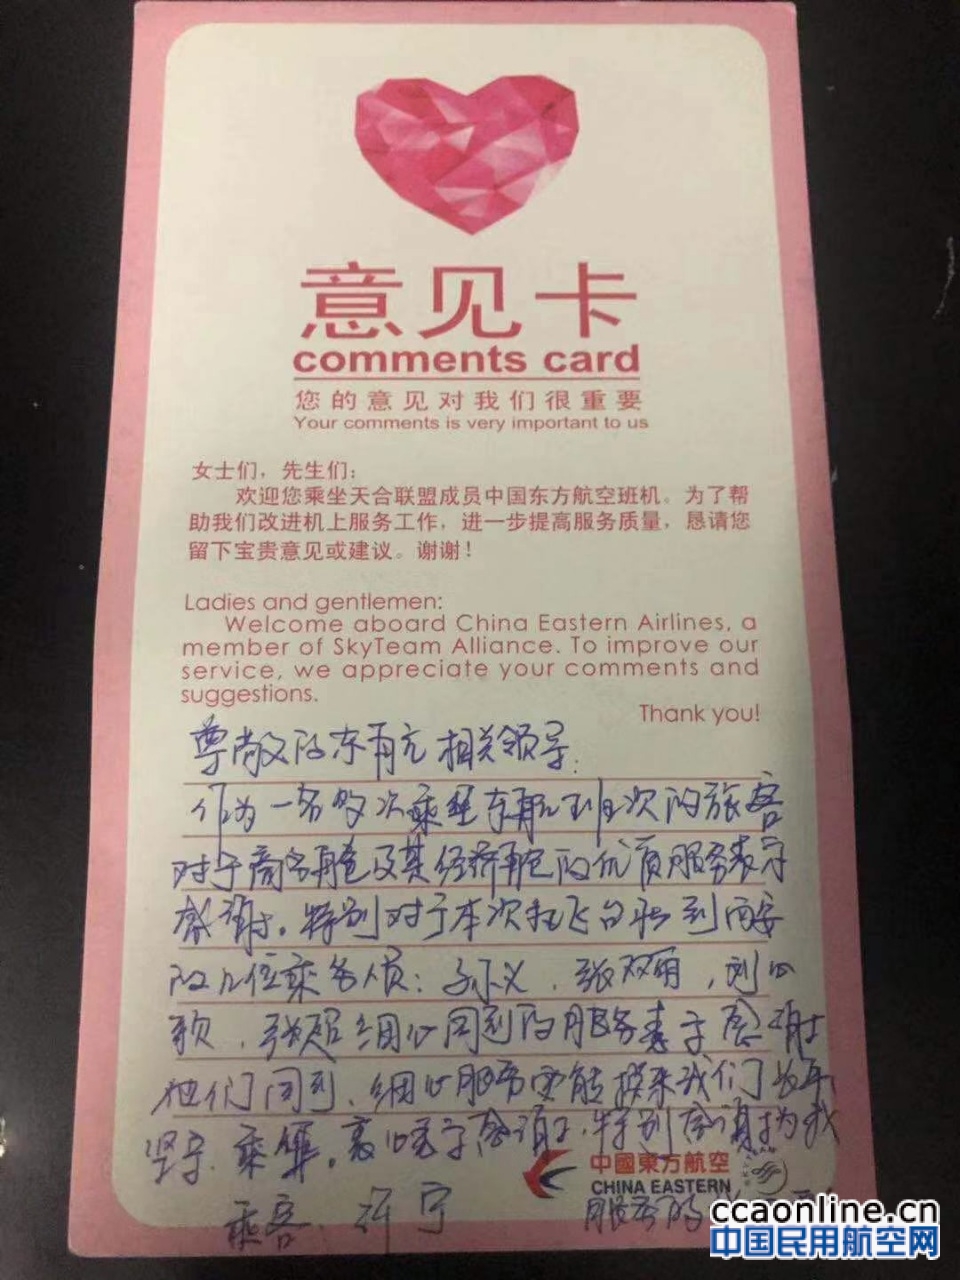 意见卡
comments card
您的意见对我们很重要
Your comments is very important to us
女士们，先生们：
欢迎您乘坐天合联盟成员中国东方航空班机。为了帮
助我们改进机上服务工作，进一步提高服务质量，恳请您
留下宝贵意见或建议。谢谢！
Ladies and gentlemen:
Welcome aboard China Eastern Airlines, a
member of SkyTeam Alliance. To improve our
service, we appreciate your comments and
suggestions.
Thank you!
尊敬的东航相关领导：
作为一名多次乘坐东航班次的旅客
对于商务舱及其经济舱的优质服务表示
感谢。特别对于本次 飞 到西安
的几位乘务员： 张双 ，刘
细心周到的服务表示感谢
他们周到、细心服务 我们
坚守 乘 。 感谢 特别感谢 为我
中國東方航空
CHINA EASTERN
乘客 许宁
服务的
ccaonline.cn
中国民用航空网